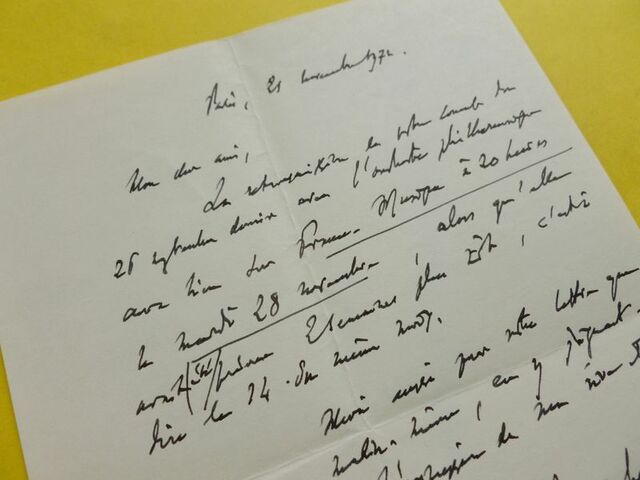 Paris, 21 novembre 1972.
Mon cher ami,
La retransmission de votre concert du
26 septembre dernier avec l'orchestre philharmonique
aura lieu sur France-Musique à 20 heures
le mardi 28 novembre, alors qu'elle
avait été prévue 2 semaines plus tôt, c'est à
dire le 14 du même mois.
Merci aussi pour votre lettre que
matin même, en y joignant
l'expression de mon